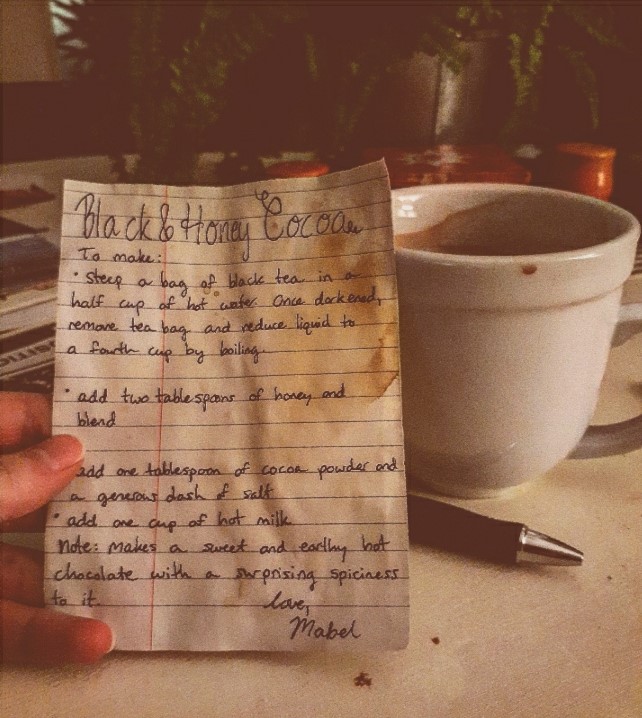 Black & Honey Cocoa
To make:
• steep a bag of black tea in a
half cup of hot water. Once darkened,
remove tea bag and reduce liquid to
a fourth cup by boiling.
• add two tablespoons of honey and
blend
add one tablespoon of cocoa powder and
a generous dash of salt
• add one cup of hot milk
Note: Makes a sweet and earthy hot
chocolate with a surprising spiciness
to it.
love,
Mabel